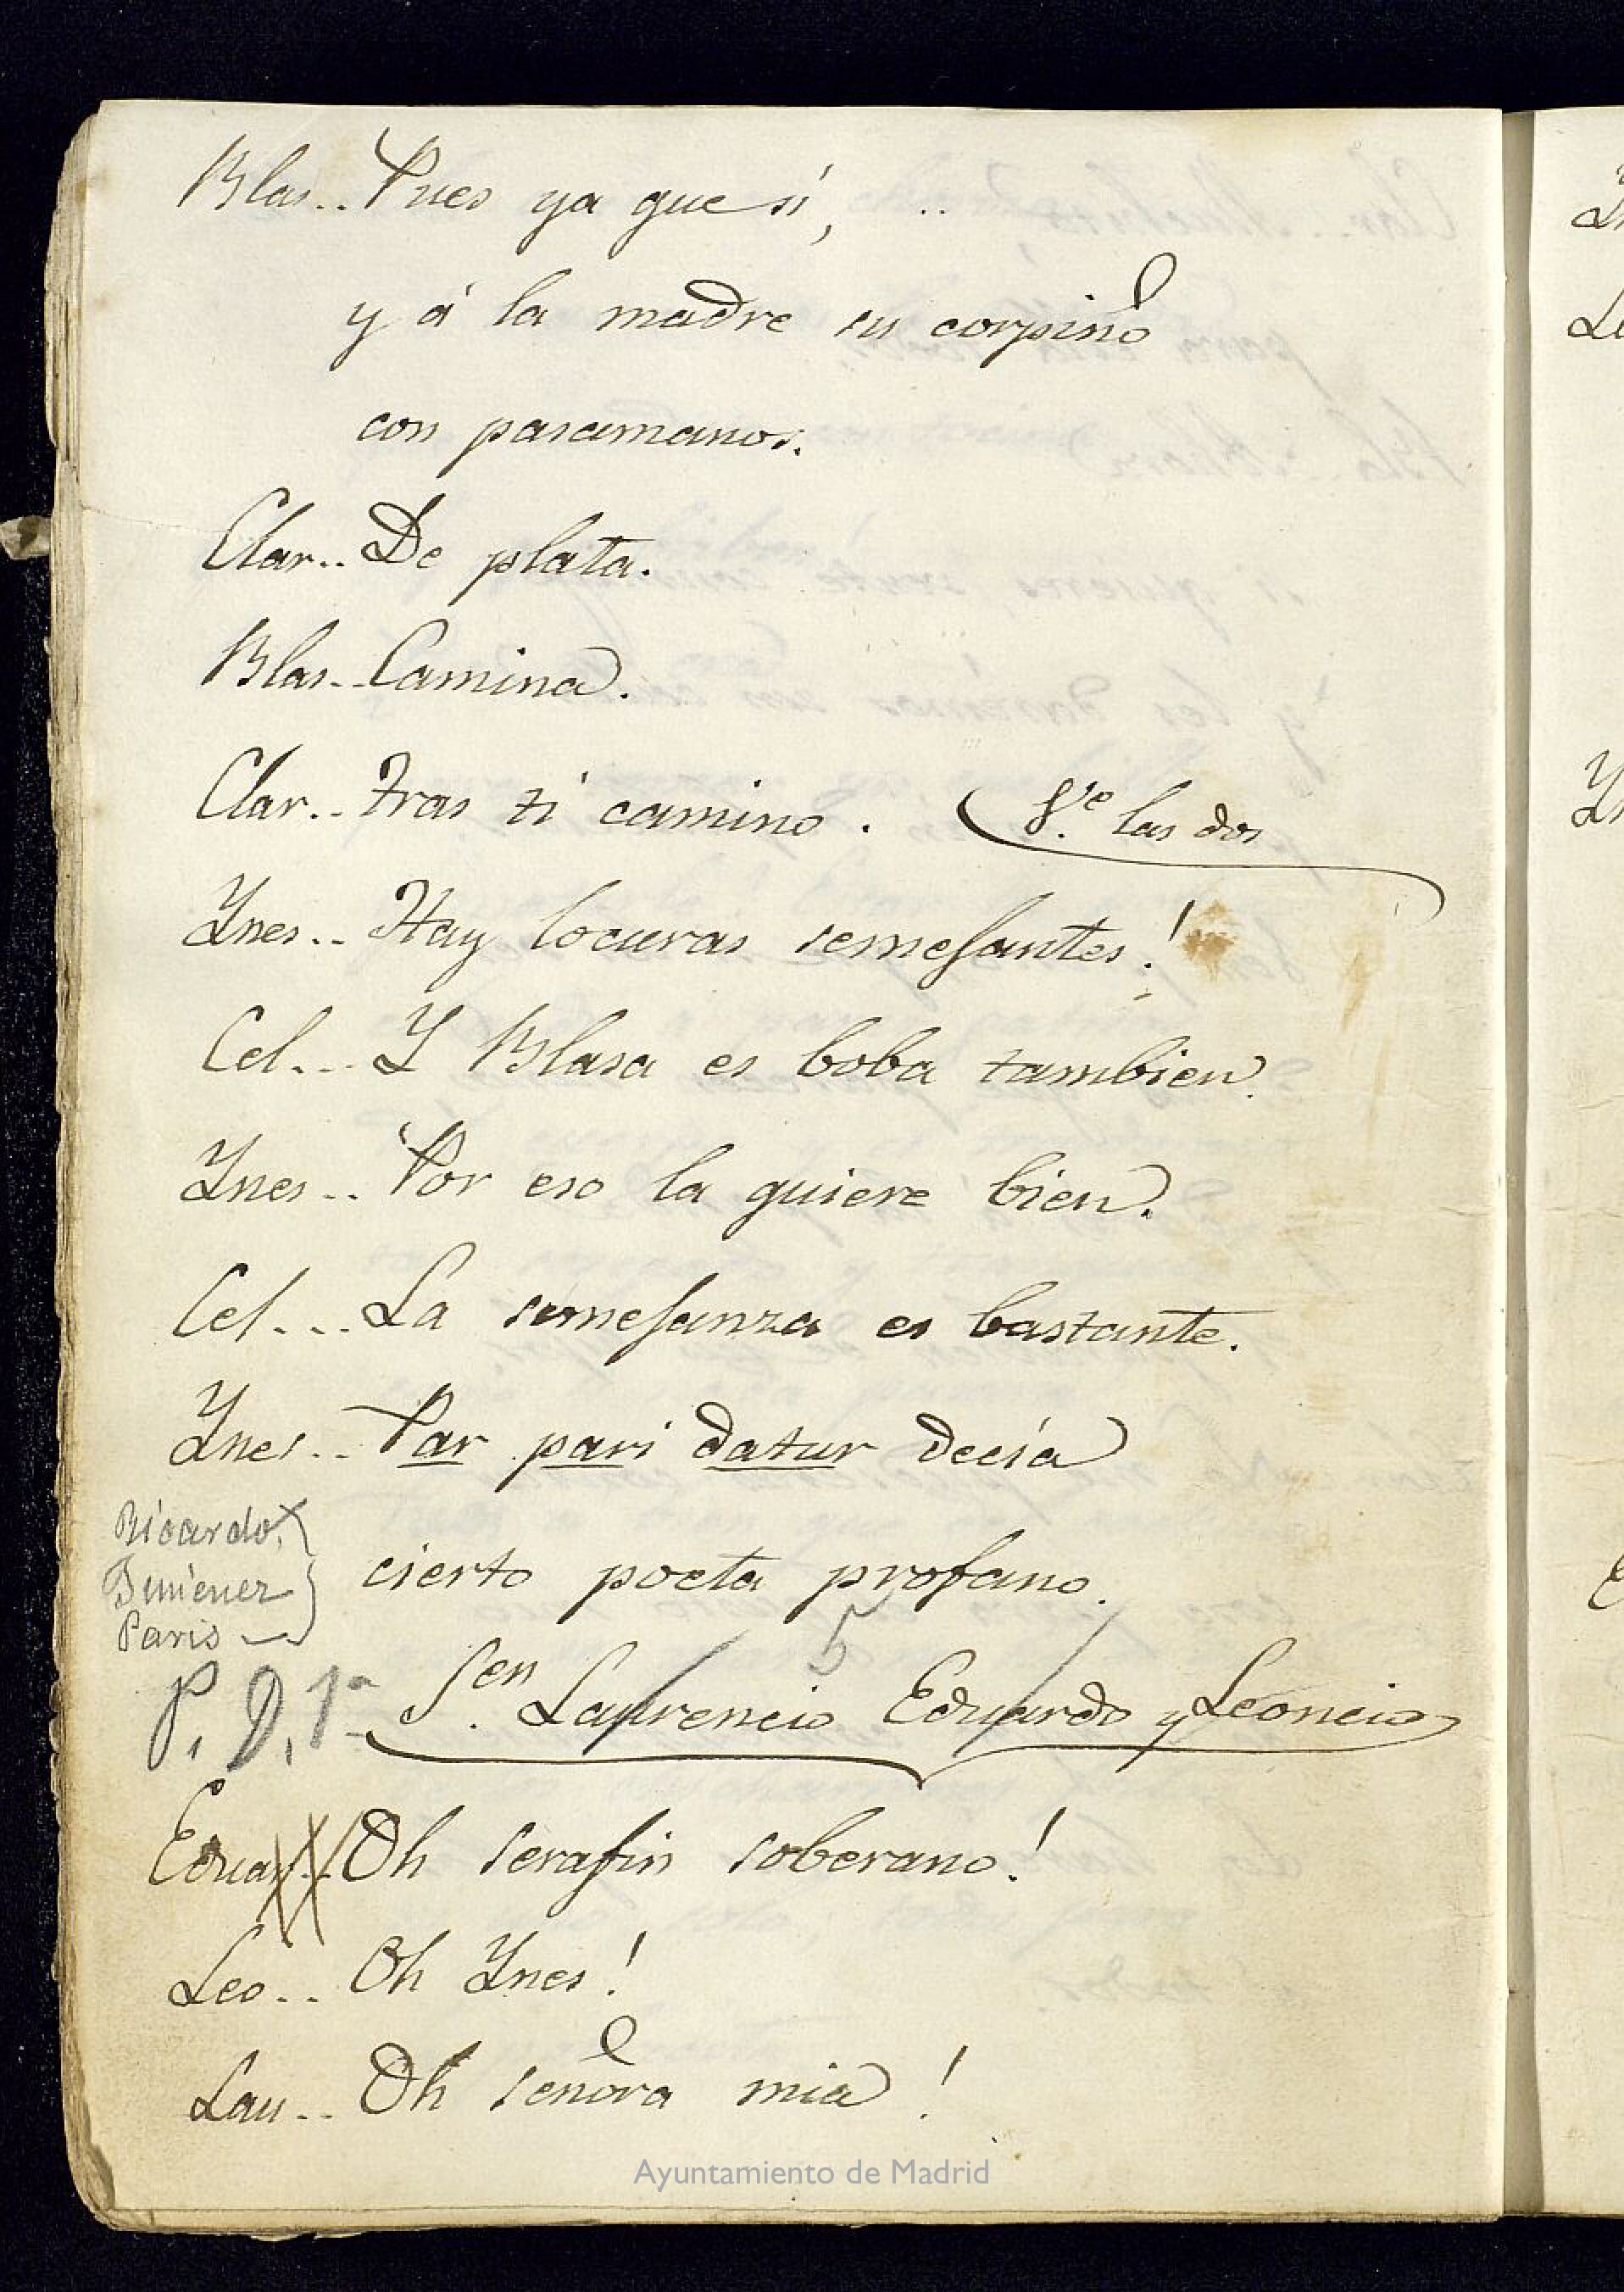 Blas.. Pues ya que sí,
y á la madre su corpiño
con pasamanos.
Clar.. De plata.
Blas.. Camina.
Clar.. Tras ti camino. (V.e las dos
Ynes.. Hay locuras semejantes!
Cel... Y Blasa es boba tambien.
Ynes.. Por eso la quiere bien.
Cel... La semejanza es bastante.
Ynes.. Par pari datur decía
Ricardo
Jimenez
Paris
cierto poeta profano.
5
P. D. 1ª
Sen. Laurencio Eduardo y Leoncio
Eduar.. Oh serafin soberano!
Leo.. Oh Ynes!
Lau.. Oh señora mia!
Ayuntamiento de Madrid